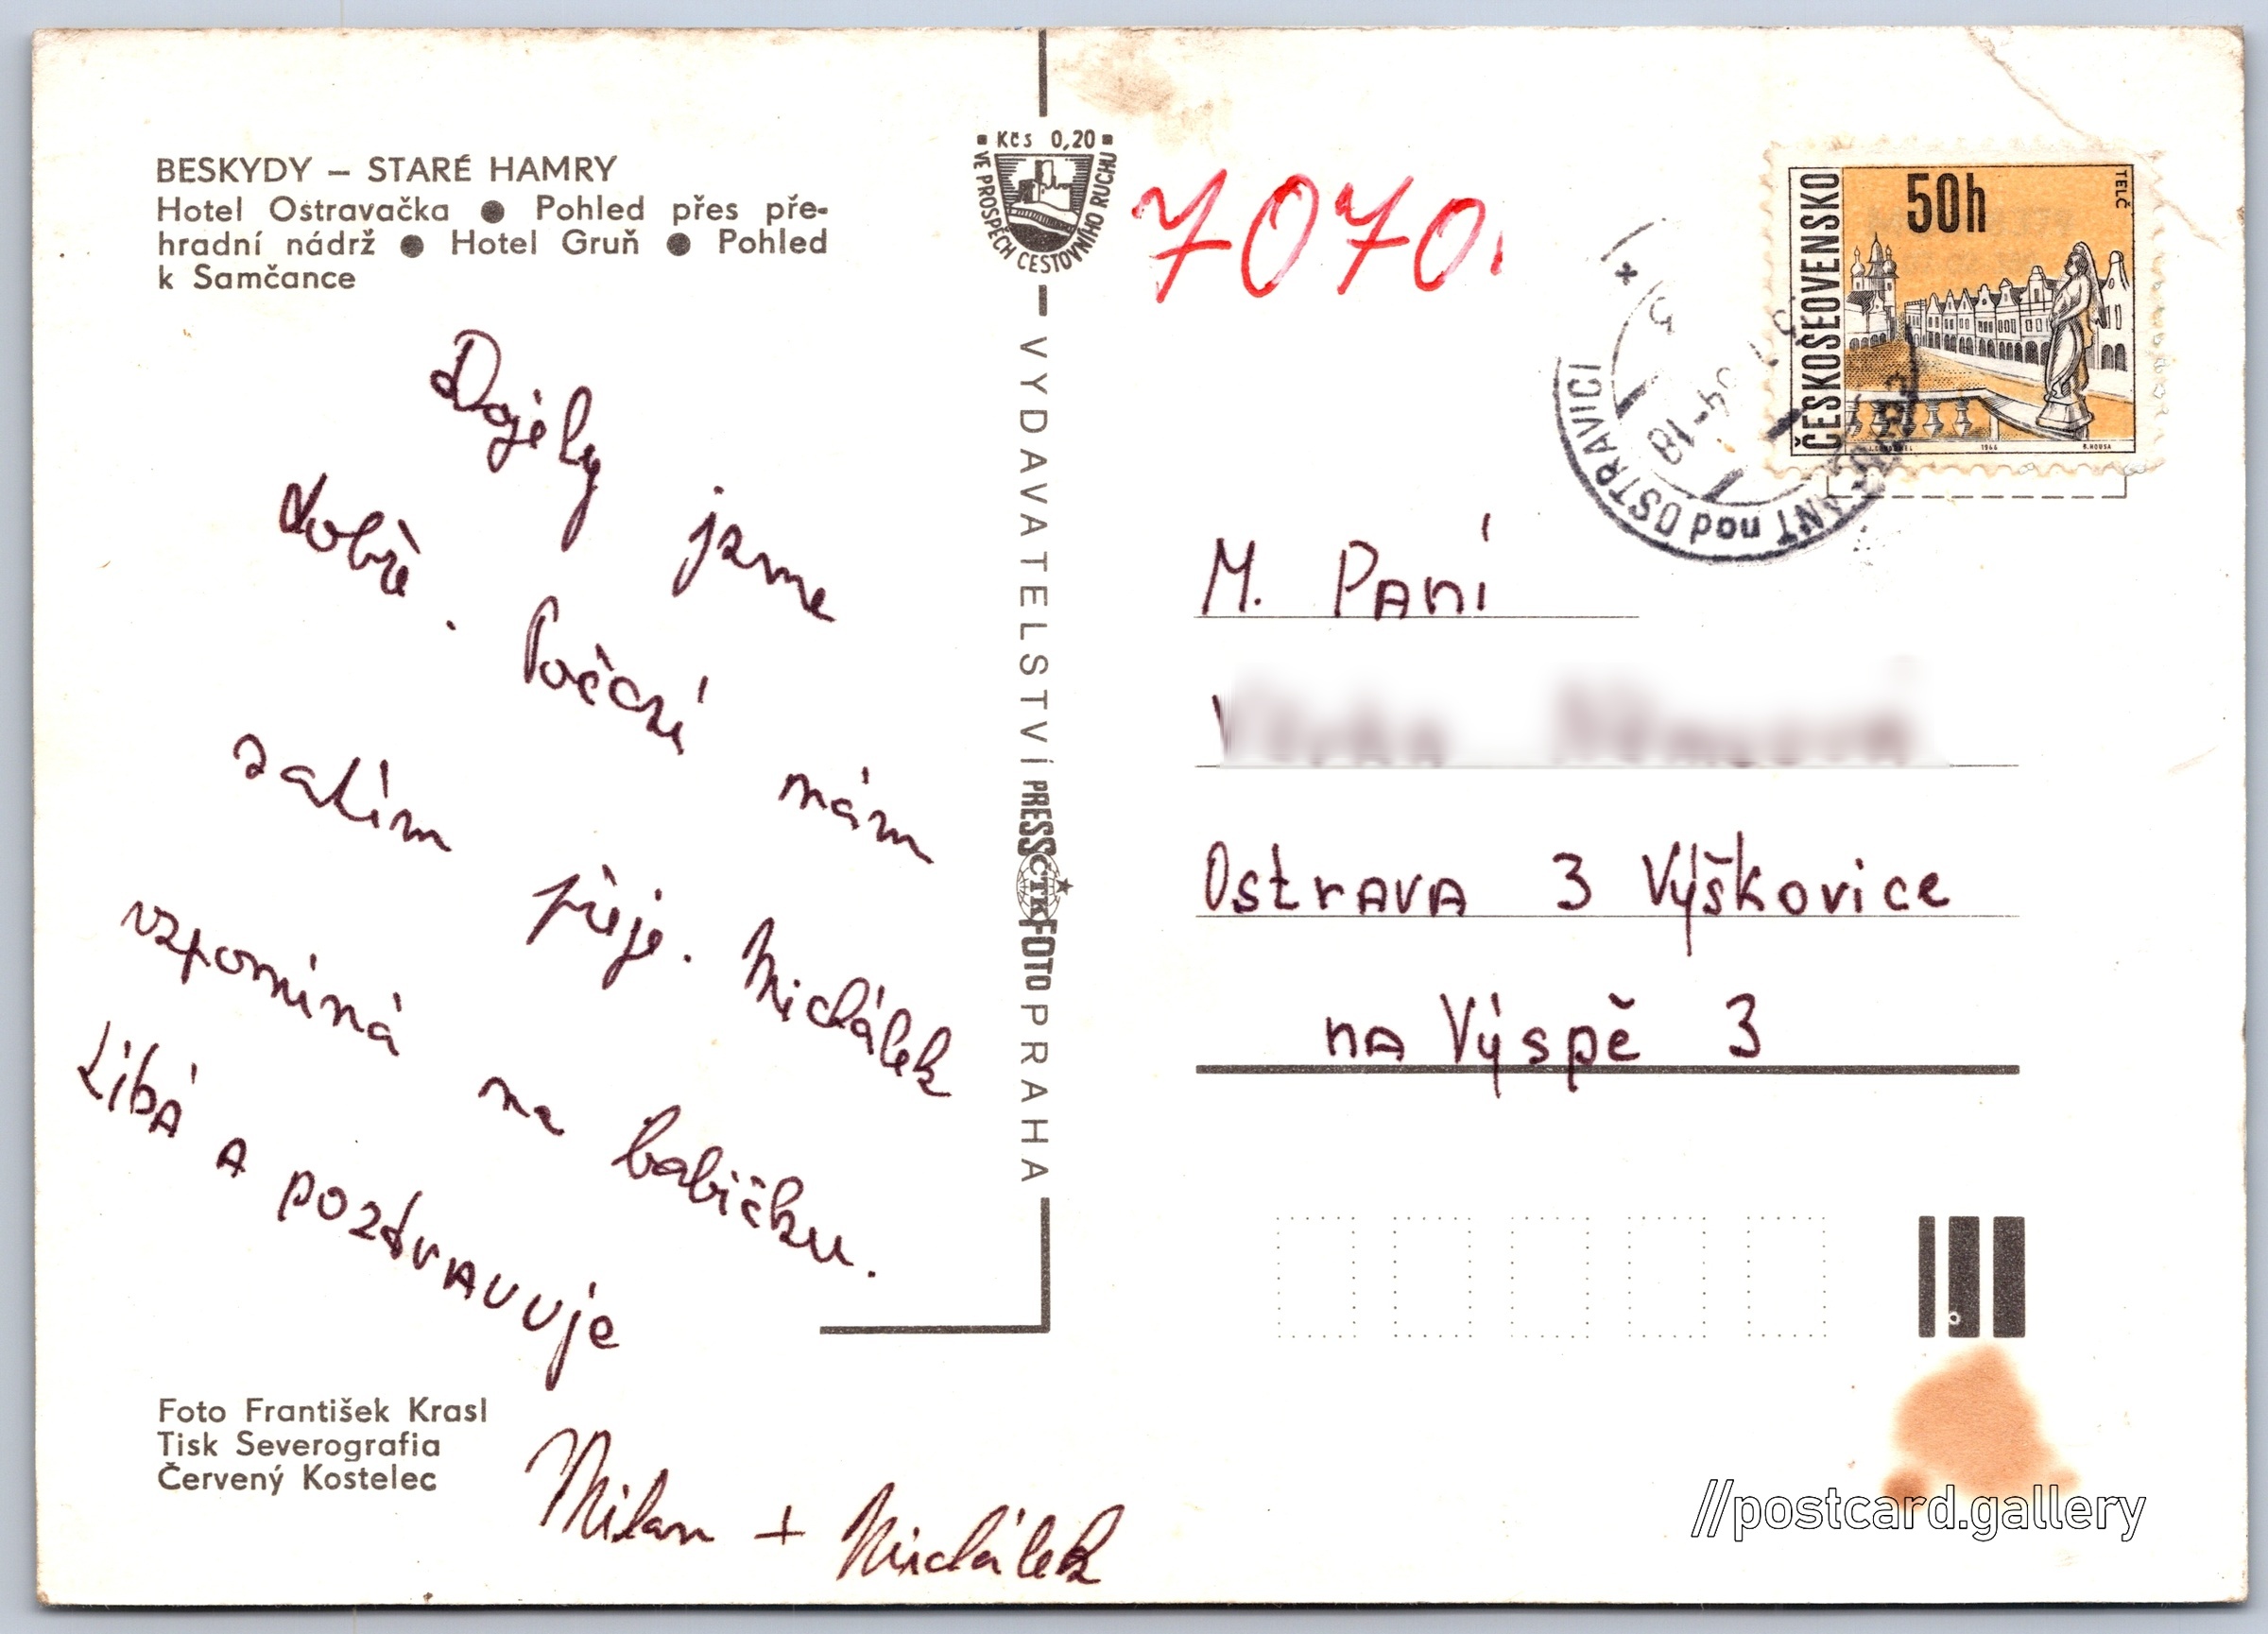 BESKYDY – STARÉ HAMRY
Hotel Ostravačka ● Pohled přes pře-
hradní nádrž ● Hotel Gruň ● Pohled
k Samčance
Dojely jsme
dobře. Počasí nám
zatím přeje. Michálek
vzpomíná na babičku.
Líbá a pozdravuje
Milan + Michálek
Foto František Krasl
Tisk Severografia
Červený Kostelec
Kčs 0,20
VE PROSPĚCH CESTOVNÍHO RUCHU
VYDAVATELSTVÍ PRESSFOTO PRAHA
ČTK
7070.
ČESKOSLOVENSKO
50h
TELČ
1966
nad OSTRAVICÍ
M. Paní
Ostrava 3 Výškovice
na Výspě 3
//postcard.gallery